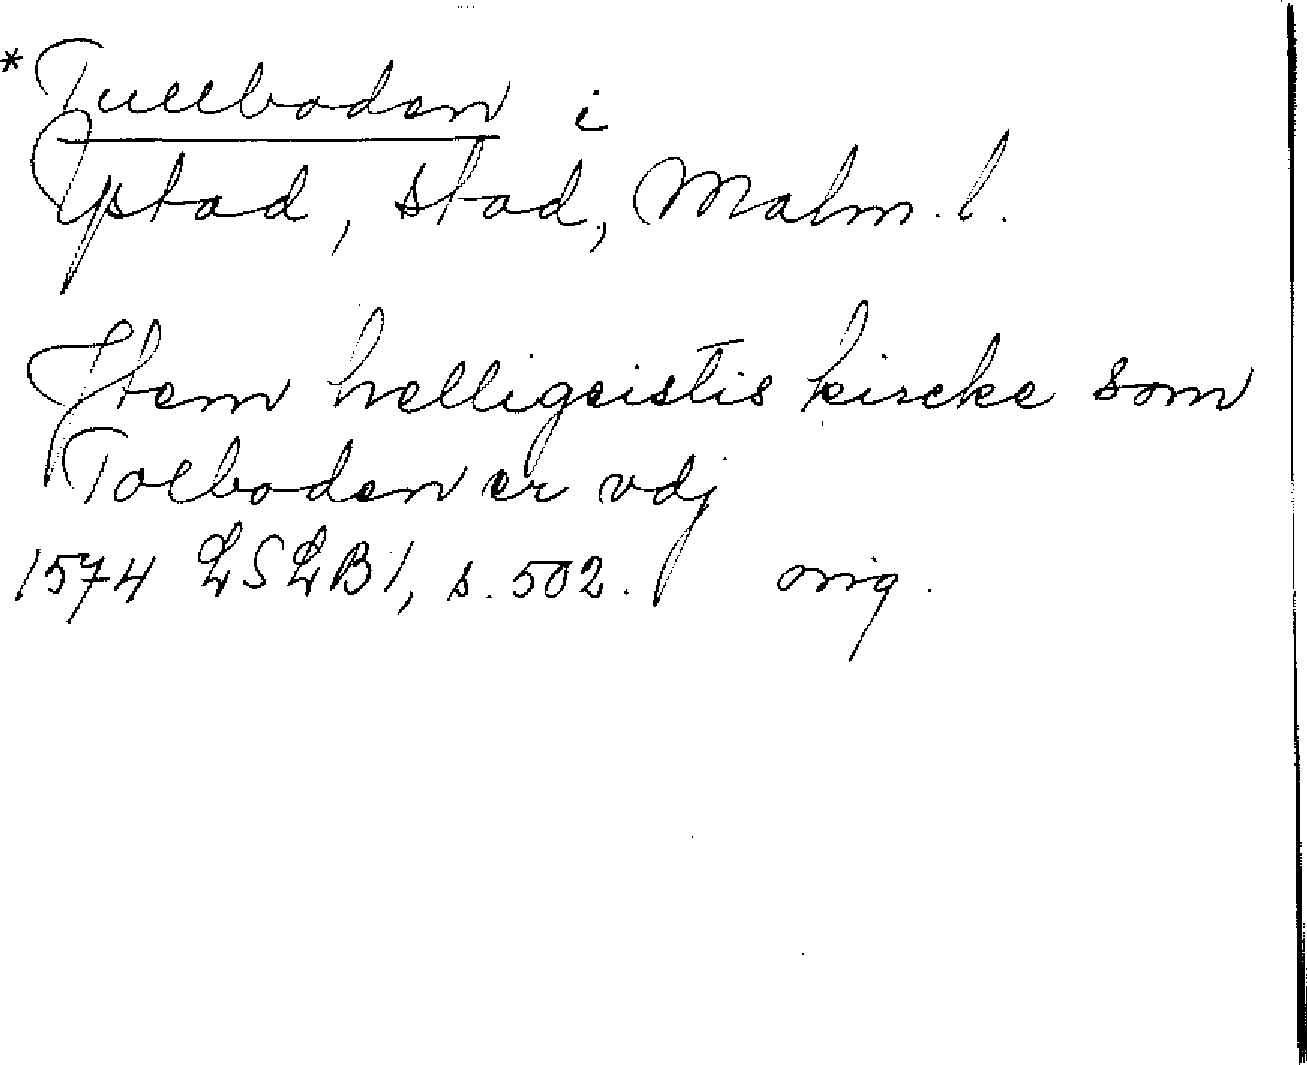 *Tullboden i
Ystad, stad, Malm. l.
Item helligeistis kircke som
Tolboden er vdj
1574 LSLB1, s. 502. orig.